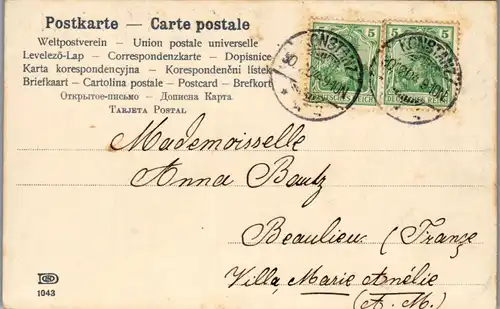 Postkarte – Carte postale
Weltpostverein – Union postale universelle
Levelező-Lap – Correspondenzkarte – Dopisnice
Karta korespondencyjna – Korespondenční lístek
Briefkaart – Cartolina postale – Postcard – Brefkort
Открытое-письмо – Дописна Карта
Tarjeta Postal
5 5
KONSTANZ
KONSTANZ
DEUTSCHES REICH DEUTSCHES REICH
Mademoisselle
Anna Bautz
Beaulieu (France
Villa Marie Amélie
(A. M.)
1943